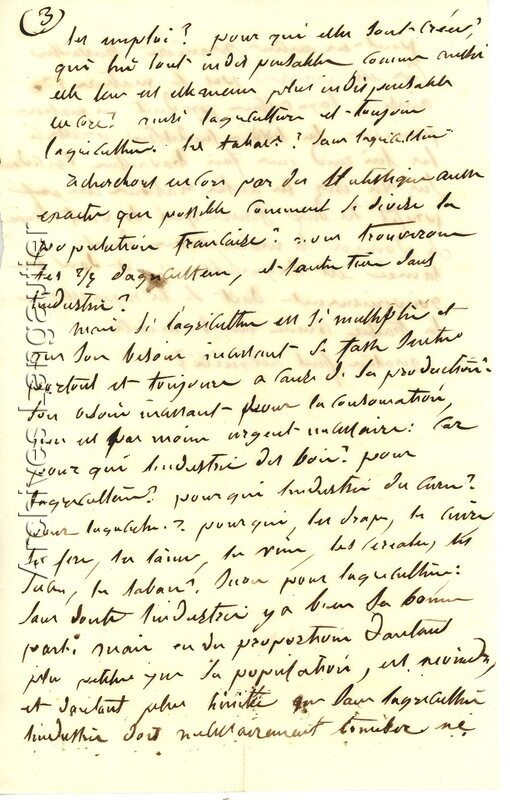 3
les emploi? pour qui elle sont créer?
qui lui tout indes pensable comme aussi
elle leur est elle meme plus indispensable
encore? aussi lagriculture et toujours
lagriculture. les tabacs? sans lagriculture
cherchons encore par des Statistique aussi
exacte que possible comment se divise la
population francaise? nous trouverons
les 2/3 dagriculteur, et lautre tiers dans
lindustrie?
mais si lagriculture est si multiplié et
que son besoin incessant se fasse sentir
partout et toujours a cause de sa production?
son besoin incessant pour la consomation,
nen est pas moins urgent necessaire: car
pour qui lindustrie des bois? pour
lagriculture? pour qui lindustrie du cuire?
pour lagriculture? pour qui, les draps, le cuivre
le fer, les laines, les vins, les cereales, les
les tabac? sinon pour lagriculture:
sans doute lindustrie y a bien sa bonne
part: mais en des proportions dautant
plus petite que sa population, est moindre,
et dautant plus que sans lagriculture
lindustrie doit necessairement tomber ne
Archives Lengaulier